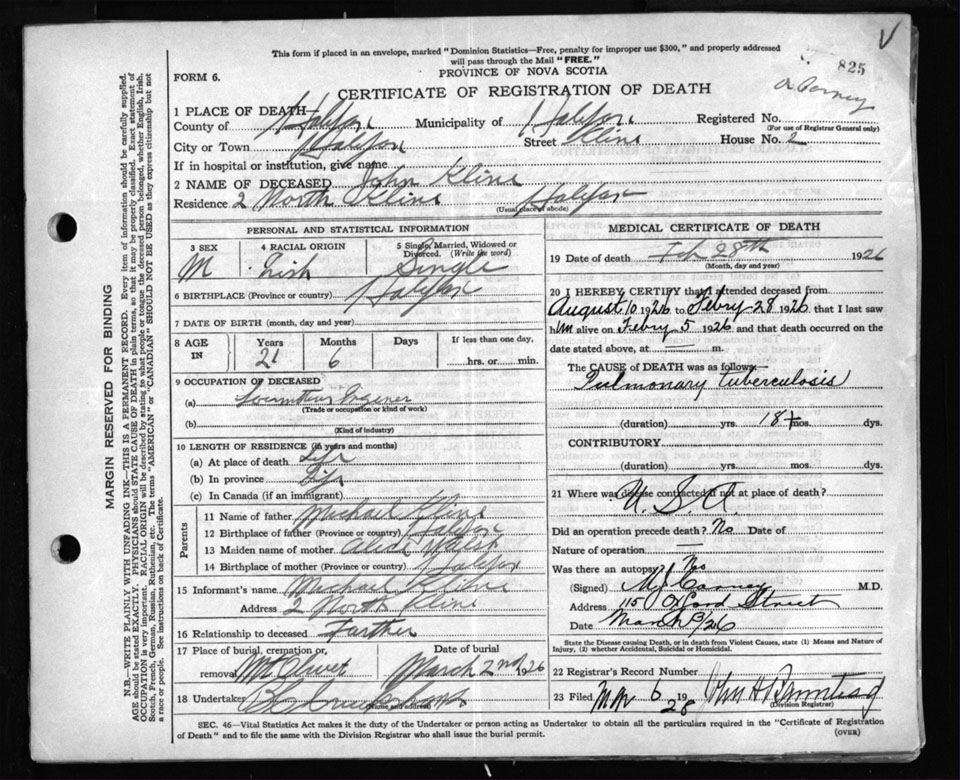 This form if placed in an envelope, marked "Dominion Statistics—Free, penalty for improper use $300," and properly addressed
will pass through the Mail "FREE."
825
FORM 6.
PROVINCE OF NOVA SCOTIA
CERTIFICATE OF REGISTRATION OF DEATH
1 PLACE OF DEATH
County of Halifax Municipality of Halifax Registered No.
(For use of Registrar General only)
City or Town Halifax Street Kline House No. 2
If in hospital or institution, give name
2 NAME OF DECEASED John Kline
Residence 2 North Kline Halifax
(Usual place of abode)
PERSONAL AND STATISTICAL INFORMATION
3 SEX 4 RACIAL ORIGIN 5 Single, Married, Widowed or
Divorced. (Write the word)
M Irish Single
6 BIRTHPLACE (Province or country) Halifax
7 DATE OF BIRTH (month, day and year)
8 AGE IN Years Months Days If less than one day,
21 6 hrs. or min.
9 OCCUPATION OF DECEASED
(a)
(Trade or occupation or kind of work)
(b)
(Kind of industry)
10 LENGTH OF RESIDENCE (in years and months)
(a) At place of death Life
(b) In province Life
(c) In Canada (if an immigrant)
Parents
11 Name of father Michael Kline
12 Birthplace of father (Province or country) Halifax
13 Maiden name of mother
14 Birthplace of mother (Province or country) Halifax
15 Informant's name Michael Kline
Address 2 North Kline
16 Relationship to deceased Farther
17 Place of burial, cremation, or Date of burial
removal Mt Olivet March 2nd 1926
18 Undertaker
(Name and address)
MEDICAL CERTIFICATE OF DEATH
19 Date of death Feb 28th 1926
(Month, day and year)
20 I HEREBY CERTIFY that I attended deceased from
August 10 1926 to Febry 28 1926 that I last saw
him alive on Febry 5 1926 and that death occurred on the
date stated above, at — m.
The CAUSE of DEATH was as follows:—
Pulmonary tuberculosis
(duration) yrs. 18+ mos. dys.
CONTRIBUTORY
(duration) yrs. mos. dys.
21 Where was disease contracted if not at place of death?
U. S. A.
Did an operation precede death? No Date of
Nature of operation —
Was there an autopsy? No
(Signed) M.D.
Address 115 Oxford Street
Date March 9/26
State the Disease causing Death, or in death from Violent Causes, state (1) Means and Nature of
Injury, (2) whether Accidental, Suicidal or Homicidal.
22 Registrar's Record Number
23 Filed Mar 6 1928
(Division Registrar)
SEC. 46—Vital Statistics Act makes it the duty of the Undertaker or person acting as Undertaker to obtain all the particulars required in the "Certificate of Registration
of Death" and to file the same with the Division Registrar who shall issue the burial permit.
(OVER)
MARGIN RESERVED FOR BINDING
N.B.—WRITE PLAINLY WITH UNFADING INK—THIS IS A PERMANENT RECORD. Every item of information should be carefully supplied.
AGE should be stated EXACTLY. PHYSICIANS should STATE CAUSE OF DEATH in plain terms, so that it may be properly classified. Exact statement of
OCCUPATION is very important. RACIAL ORIGIN will be described by stating to what people or tongue the deceased person belonged, whether English, Irish,
Scotch, French, German, Russian, Ruthenian, etc. The terms "AMERICAN" or "CANADIAN" SHOULD NOT BE USED as they express citizenship but not
a race or people. See instructions on back of Certificate.